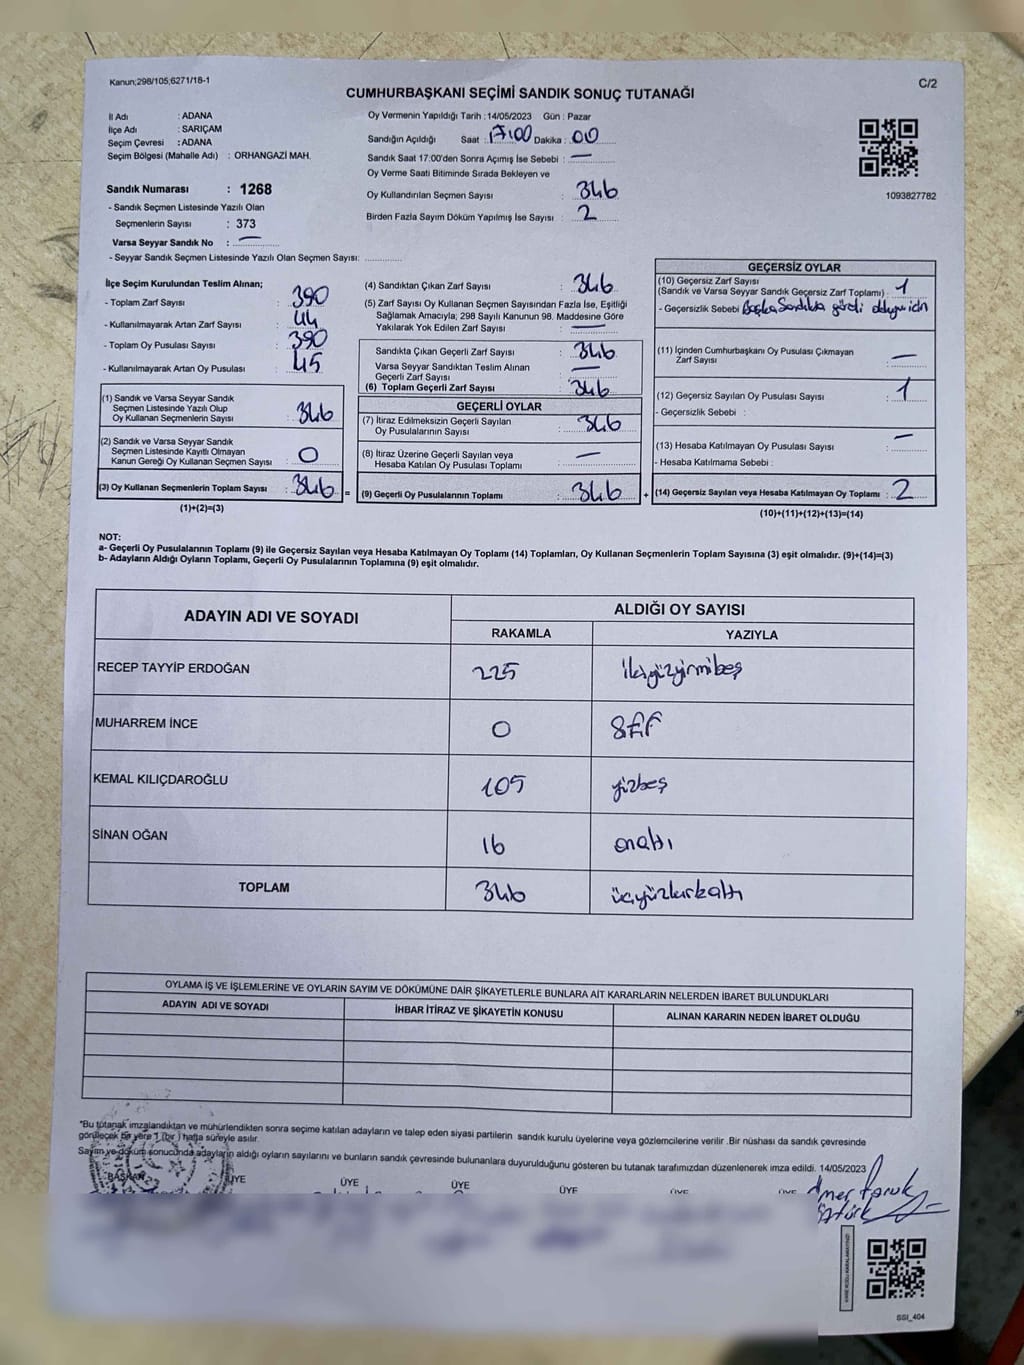 Kanun;298/105,6271/18-1
C/2
CUMHURBAŞKANI SEÇİMİ SANDIK SONUÇ TUTANAĞI
İl Adı : ADANA
İlçe Adı : SARIÇAM
Seçim Çevresi : ADANA
Seçim Bölgesi (Mahalle Adı) : ORHANGAZİ MAH.
Sandık Numarası : 1268
- Sandık Seçmen Listesinde Yazılı Olan
Seçmenlerin Sayısı : 373
Varsa Seyyar Sandık No : —
- Seyyar Sandık Seçmen Listesinde Yazılı Olan Seçmen Sayısı:
Oy Vermenin Yapıldığı Tarih : 14/05/2023 Gün : Pazar
Sandığın Açıldığı Saat : 17:00 Dakika : 00
Sandık Saat 17:00'den Sonra Açımış İse Sebebi : —
Oy Verme Saati Bitiminde Sırada Bekleyen ve
Oy Kullandırılan Seçmen Sayısı : 346
Birden Fazla Sayım Döküm Yapılmış İse Sayısı : 2
1093827782
İlçe Seçim Kurulundan Teslim Alınan;
- Toplam Zarf Sayısı : 390
- Kullanılmayarak Artan Zarf Sayısı : 44
- Toplam Oy Pusulası Sayısı : 390
- Kullanılmayarak Artan Oy Pusulası : 45
(1) Sandık ve Varsa Seyyar Sandık
Seçmen Listesinde Yazılı Olup
Oy Kullanan Seçmenlerin Sayısı : 346
(2) Sandık ve Varsa Seyyar Sandık
Seçmen Listesinde Kayıtlı Olmayan
Kanun Gereği Oy Kullanan Seçmen Sayısı : 0
(3) Oy Kullanan Seçmenlerin Toplam Sayısı : 346 =
(1)+(2)=(3)
(4) Sandıktan Çıkan Zarf Sayısı : 346
(5) Zarf Sayısı Oy Kullanan Seçmen Sayısından Fazla İse, Eşitliği
Sağlamak Amacıyla; 298 Sayılı Kanunun 98. Maddesine Göre
Yakılarak Yok Edilen Zarf Sayısı : —
Sandıkta Çıkan Geçerli Zarf Sayısı : 346
Varsa Seyyar Sandıktan Teslim Alınan
Geçerli Zarf Sayısı : —
(6) Toplam Geçerli Zarf Sayısı : 346
GEÇERLİ OYLAR
(7) İtiraz Edilmeksizin Geçerli Sayılan
Oy Pusulalarının Sayısı : 346
(8) İtiraz Üzerine Geçerli Sayılan veya
Hesaba Katılan Oy Pusulası Toplamı : —
(9) Geçerli Oy Pusulalarının Toplamı : 346 +
GEÇERSİZ OYLAR
(10) Geçersiz Zarf Sayısı
(Sandık ve Varsa Seyyar Sandık Geçersiz Zarf Toplamı) : 1
- Geçersizlik Sebebi : Başka Sandıkta girdi olduğu için
(11) İçinden Cumhurbaşkanı Oy Pusulası Çıkmayan
Zarf Sayısı : —
(12) Geçersiz Sayılan Oy Pusulası Sayısı : 1
- Geçersizlik Sebebi :
(13) Hesaba Katılmayan Oy Pusulası Sayısı : —
- Hesaba Katılmama Sebebi :
(14) Geçersiz Sayılan veya Hesaba Katılmayan Oy Toplamı : 2
(10)+(11)+(12)+(13)=(14)
NOT:
a- Geçerli Oy Pusulalarının Toplamı (9) ile Geçersiz Sayılan veya Hesaba Katılmayan Oy Toplamı (14) Toplamları, Oy Kullanan Seçmenlerin Toplam Sayısına (3) eşit olmalıdır. (9)+(14)=(3)
b- Adayların Aldığı Oyların Toplamı, Geçerli Oy Pusulalarının Toplamına (9) eşit olmalıdır.
ADAYIN ADI VE SOYADI
ALDIĞI OY SAYISI
RAKAMLA YAZIYLA
RECEP TAYYİP ERDOĞAN 225 ikiyüzyirmibeş
MUHARREM İNCE 0 Sıfır
KEMAL KILIÇDAROĞLU 105 yüzbeş
SİNAN OĞAN 16 onaltı
TOPLAM 346 üçyüzkırkaltı
OYLAMA İŞ VE İŞLEMLERİNE VE OYLARIN SAYIM VE DÖKÜMÜNE DAİR ŞİKAYETLERLE BUNLARA AİT KARARLARIN NELERDEN İBARET BULUNDUKLARI
ADAYIN ADI VE SOYADI İHBAR İTİRAZ VE ŞİKAYETİN KONUSU ALINAN KARARIN NEDEN İBARET OLDUĞU
*Bu tutanak imzalandıktan ve mühürlendikten sonra seçime katılan adayların ve talep eden siyasi partilerin sandık kurulu üyelerine veya gözlemcilerine verilir .Bir nüshası da sandık çevresinde
görülecek bir yere 1 (bir ) hafta süreyle asılır.
Sayım ve döküm sonucunda adayların aldığı oyların sayılarını ve bunların sandık çevresinde bulunanlara duyurulduğunu gösteren bu tutanak tarafımızdan düzenlenerek imza edildi. 14/05/2023
BAŞKAN ÜYE ÜYE ÜYE ÜYE ÜYE ÜYE
Ömer Faruk
Öztürk
SSI_404